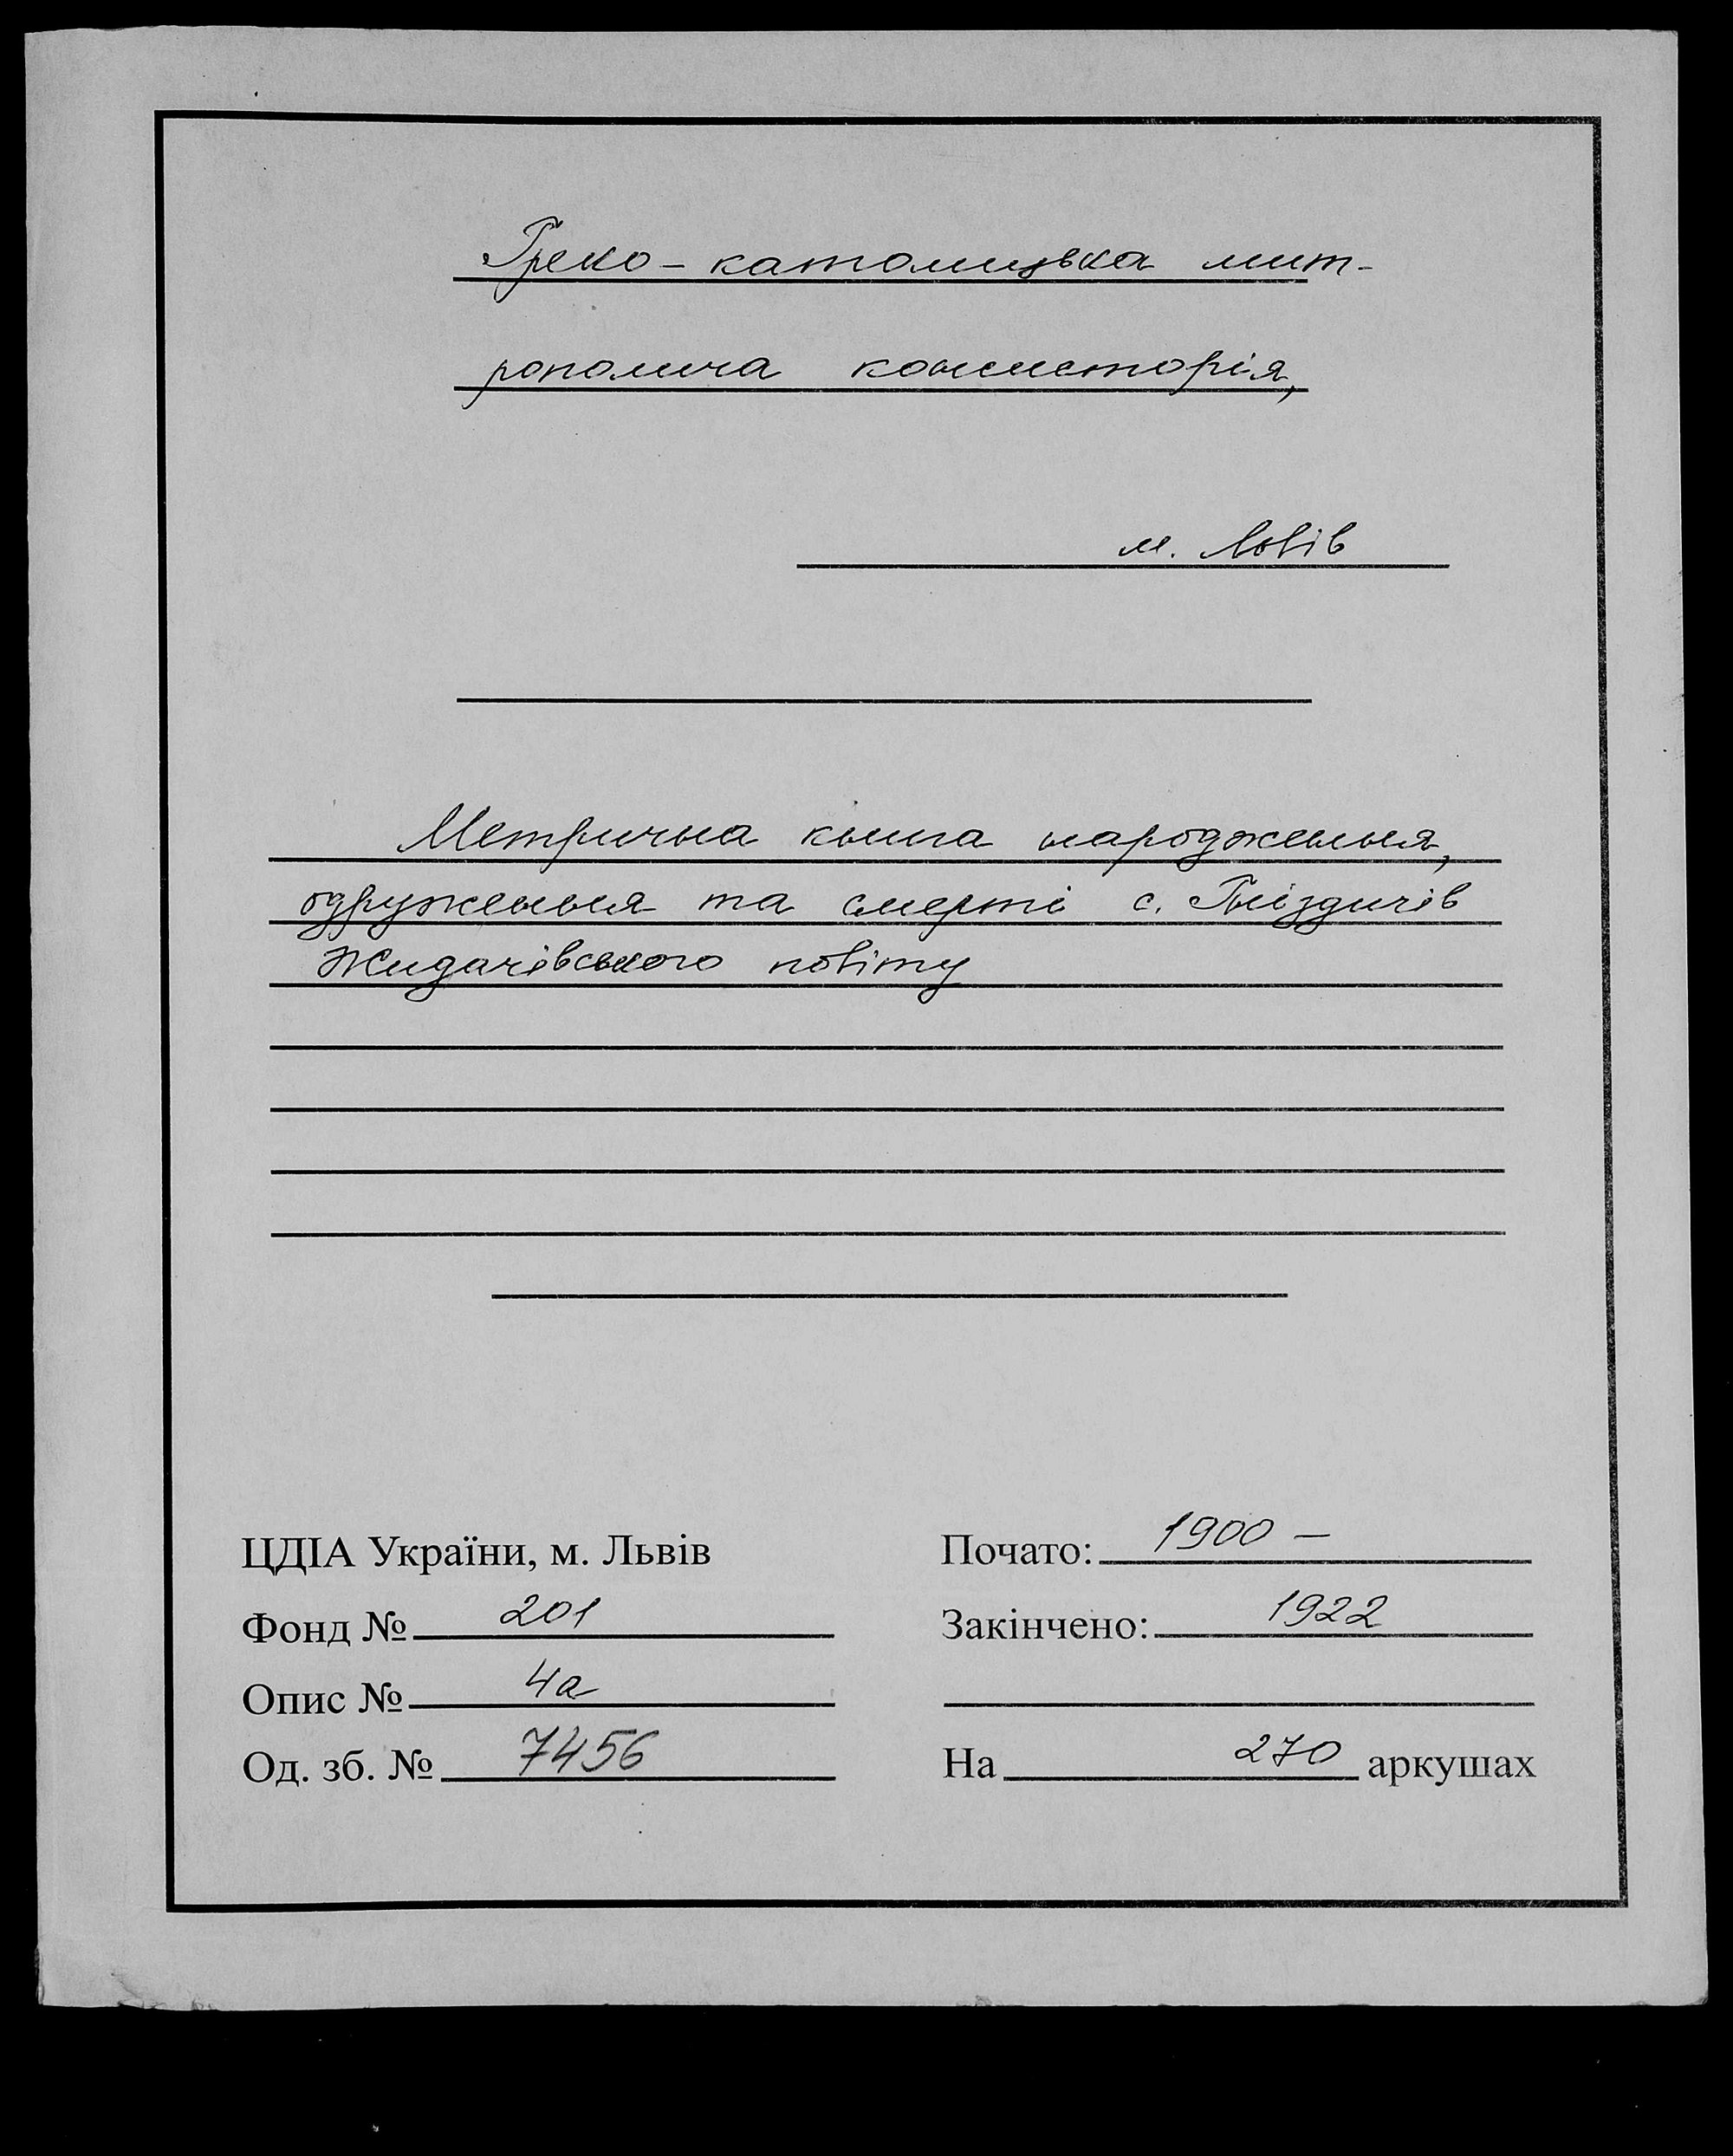 Греко-католицька мит-
рополича консисторія,
м. Львів
Метрична книга народження,
одруження та смерті с. Гніздичів
Жидачівського повіту
ЦДІА України, м. Львів
Фонд № 201
Опис № 4а
Од. зб. № 7456
Почато: 1900 –
Закінчено: 1922
На 270 аркушах